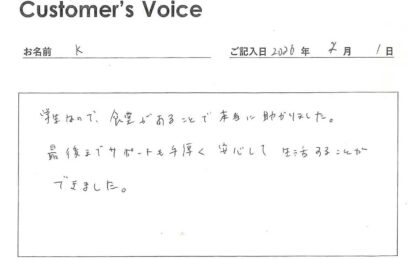 Customer's Voice
お名前 K ご記入日 2026 年 2 月 1 日
学生なので、食堂があることで本当に助かりました。
最後までサポートも手厚く安心して生活することが
できました。